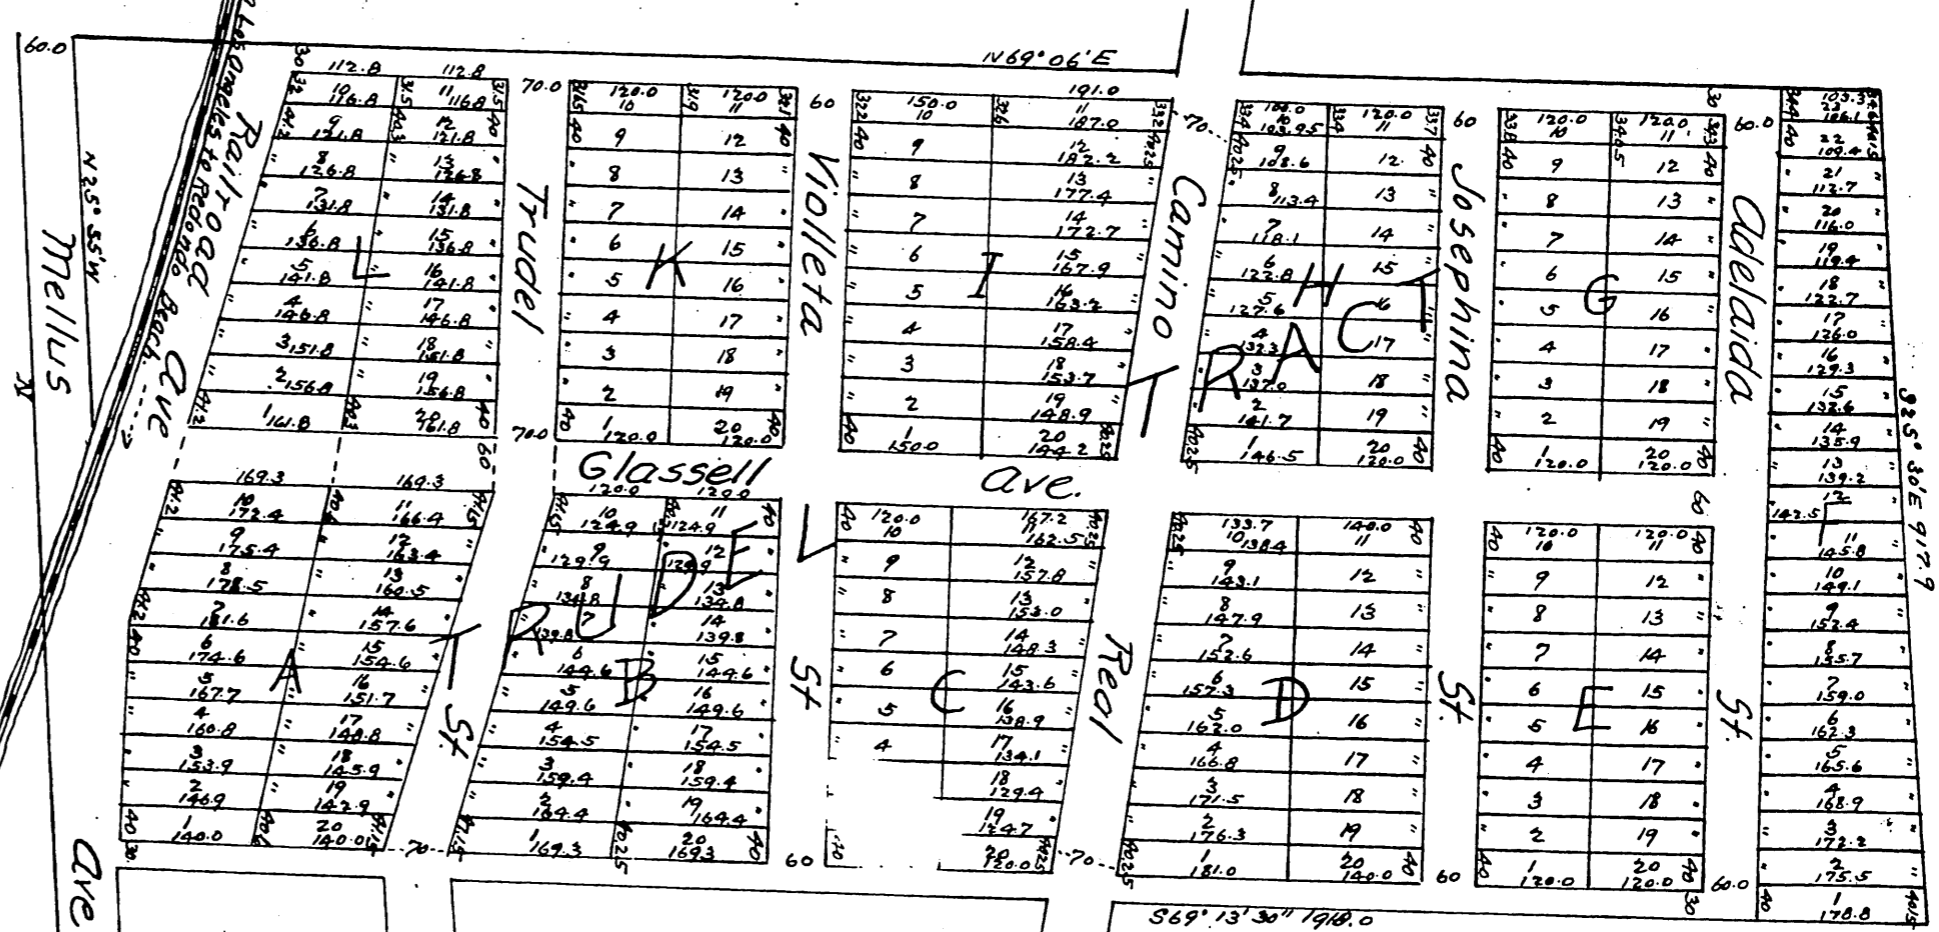 60.0
N69°06'E
Los Angeles to Redondo Beach
Railroad Ave
N25°55'W
Mellus Ave
Trudel St.
Violleta St
Camino Real
Josephina St.
Adelaida St.
Glassell Ave.
TRUDEL TRACT
S25°30'E 917.9
S69°13'30" 1918.0
L
30
112.8 112.8
10 11
116.8 116.8
9 12
121.8 121.8
8 13
126.8 126.8
7 14
131.8 131.8
6 15
136.8 136.8
5 16
141.8 141.8
4 17
146.8 146.8
3 151.8 18 151.8
2 156.8 19 156.8
1 161.8 20 161.8
70.0
K
120.0 120.0
10 11
9 12
8 13
7 14
6 15
5 16
4 17
3 18
2 19
1 20
120.0 120.0
60
I
150.0 191.0
10 11 187.0
9 12 182.2
8 13 177.4
7 14 172.7
6 15 167.9
5 16 163.2
4 17 158.4
3 18 153.7
2 19 148.9
1 20
150.0 144.2
70
H
120.0
10 11
9 108.6 12
8 113.4 13
7 118.1 14
6 122.8 15
5 127.6 16
4 132.3 17
3 137.0 18
2 141.7 19
1 146.5 20 120.0
60
G
120.0 120.0
10 11
9 12
8 13
7 14
6 15
5 16
4 17
3 18
2 19
1 20
120.0 120.0
30
60.0
F
103.3
23 106.1
22 109.4
21 112.7
20 116.0
19 119.4
18 122.7
17 126.0
16 129.3
15 132.6
14 135.9
13 139.2
12 142.5
11 145.8
10 149.1
9 152.4
8 155.7
7 159.0
6 162.3
5 165.6
4 168.9
3 172.2
2 175.5
1 178.8
A
169.3 169.3
10 172.4 11 166.4
9 175.4 12 163.4
8 178.5 13 160.5
7 181.6 14 157.6
6 174.6 15 154.6
5 167.7 16 151.7
4 160.8 17 148.8
3 153.9 18 145.9
2 146.9 19 142.9
1 140.0 20 140.0
70
B
120.0 120.0
10 124.9 11 124.9
9 129.9 12 129.9
8 134.8 13 134.8
7 139.8 14 139.8
6 144.6 15 144.6
5 149.6 16 149.6
4 154.5 17 154.5
3 159.4 18 159.4
2 164.4 19 164.4
1 169.3 20 169.3
60
C
120.0 167.2
10 11 162.5
9 12 157.8
8 13 153.0
7 14 148.3
6 15 143.6
5 16 138.9
4 17 134.1
18 129.4
19 124.7
20 120.0
70
D
133.7 140.0
10 138.4 11
9 143.1 12
8 147.9 13
7 152.6 14
6 157.3 15
5 162.0 16
4 166.8 17
3 171.5 18
2 176.3 19
1 181.0 20 140.0
60
E
120.0 120.0
10 11
9 12
8 13
7 14
6 15
5 16
4 17
3 18
2 19
1 20
120.0 120.0
30
60.0